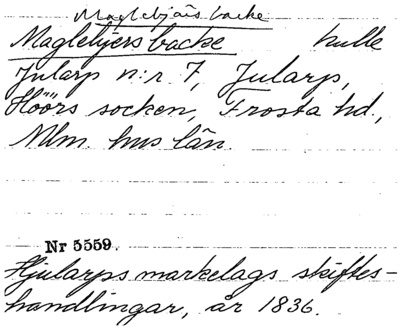 Maglebjärs backe
Maglebjersbacke kulle
Jularp n:r 7, Jularp,
Höörs socken, Frosta hd.,
Mlm. hus län.
Nr 5559.
Hjularps markelags skiftes-
handlingar, år 1836.